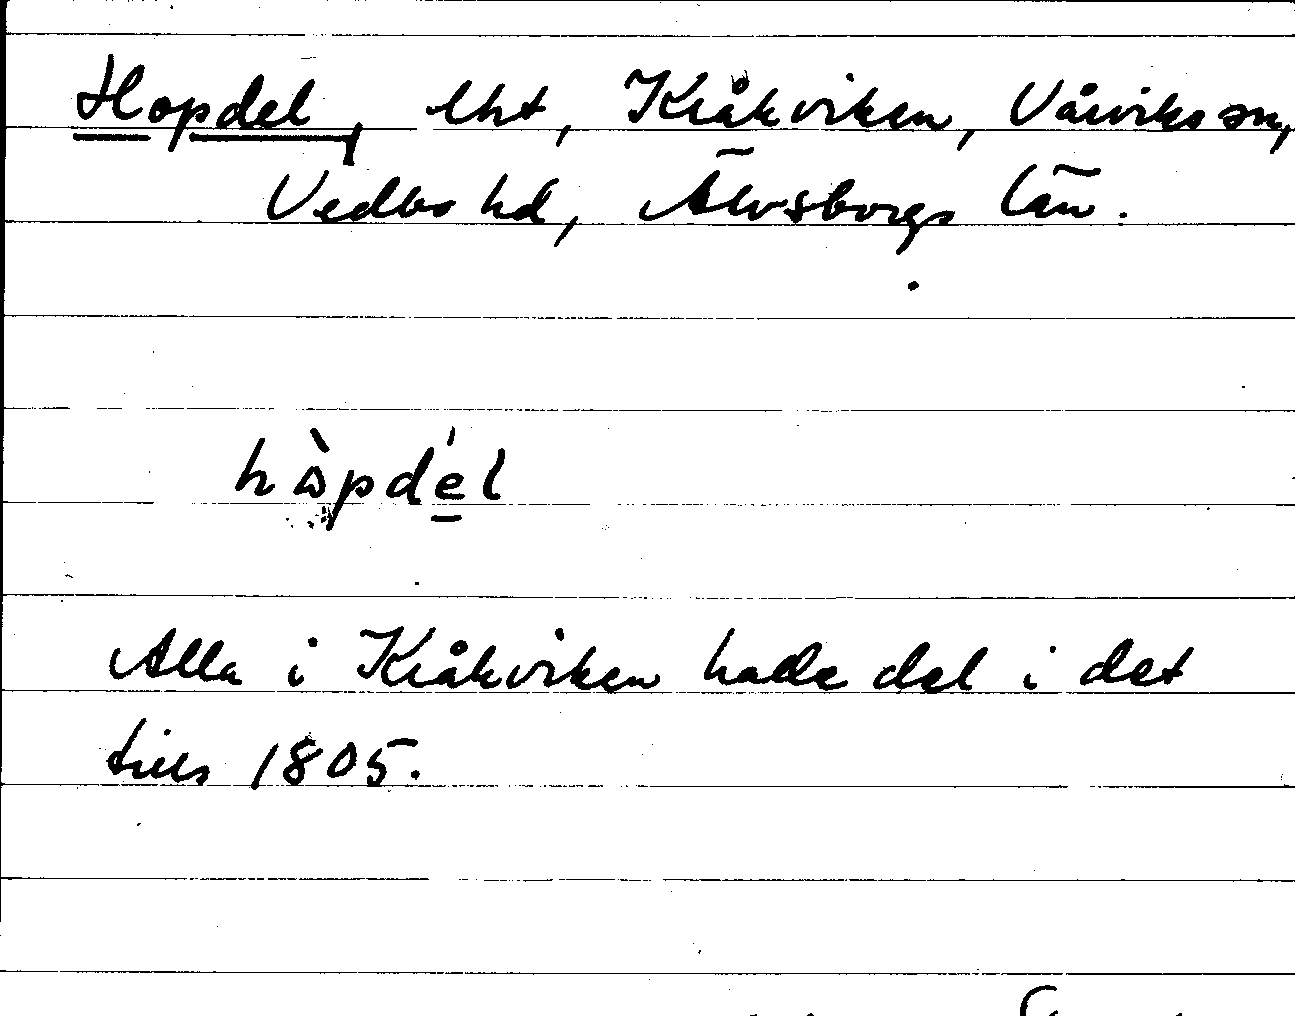 Hopdel, lht, Kråkviken, Vårviks sn,
Vedbo hd, Älvsborgs län.
hòpdél
Alla i Kråkviken hade del i det
tills 1805.